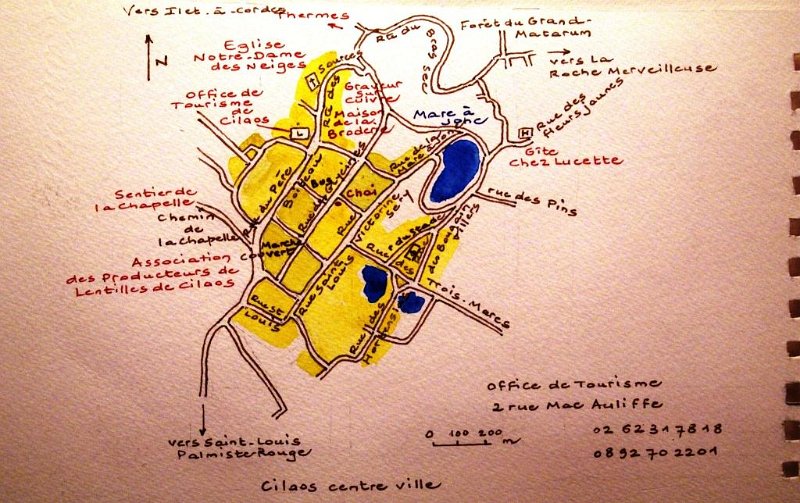 Vers Ilet-à-Cordes
Thermes
Rte du Bras Sec
Forêt du Grand-
Matarum
vers La
Roche Merveilleuse
N
Eglise
Notre-Dame
des Neiges
Rte des Sources
Office de
Tourisme
de
Cilaos
Graveur
sur
Cuivre
Maison
de la
Broderie
Mare à
Jonc
Rue des
Fleurs Jaunes
Gîte
Chez Lucette
Rue de la
Mare à Joncs
rue des Pins
Sentier de
la Chapelle
Chemin
de
la Chapelle
Rue du Père
Boiteau
Rue des Glycines
Chai
Rue
Victorine
Séry
Marché
couvert
Association
des Producteurs de
Lentilles de Cilaos
Rue Saint
Louis
Rue St
Louis
Rue des
Trois-Mares
Rue des
du Bougain
villiers
vers Saint-Louis
Palmiste Rouge
0 100 200
m
Office de Tourisme
2 rue Mac Auliffe
02 62 31 78 18
08 92 70 22 01
Cilaos centre ville